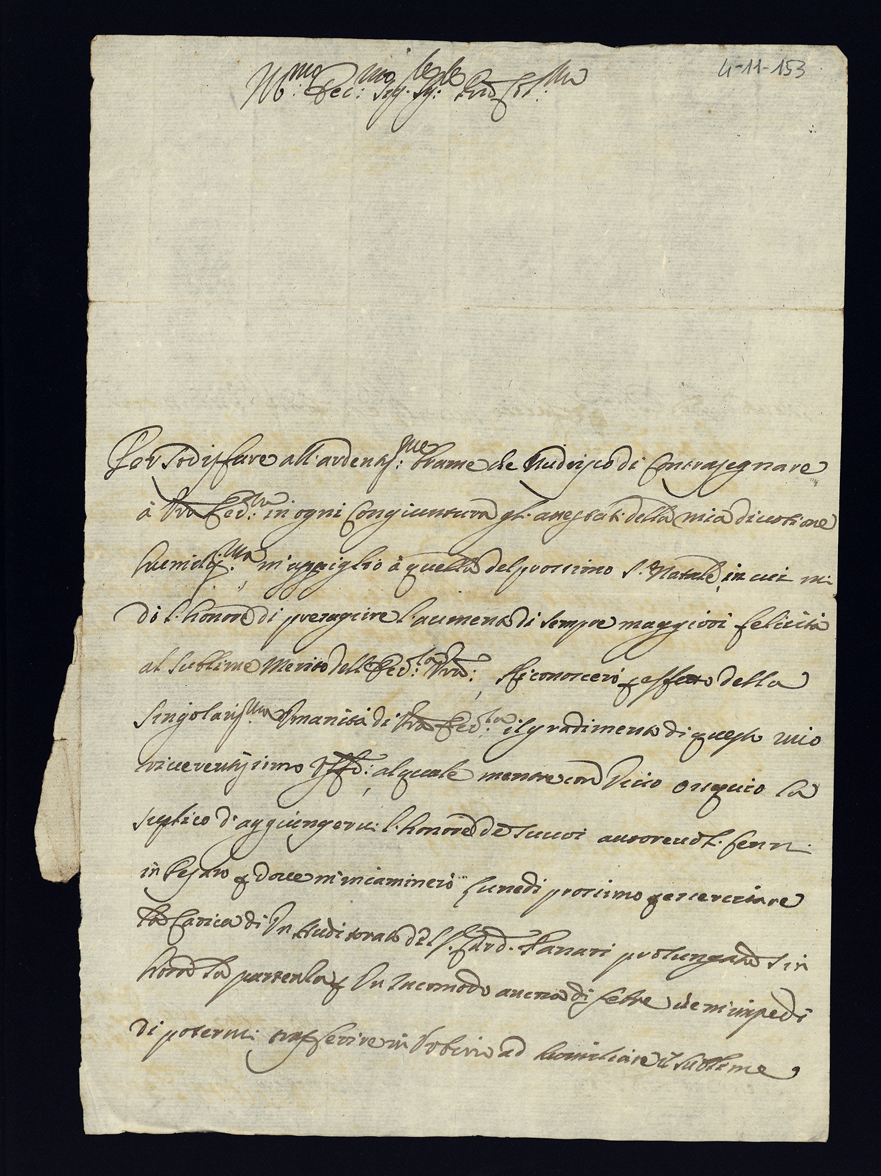 4-11-153
Ill:mo Ecc:mo Sig.re Sig:re
Per sodisffare all'ardentiss:me brame che Nudrisco di Contrasegnare
à Vra Ecc:za in ogni Congiuntura gl'attestati della mia divotione
humiliss:ma m'appiglio à quella del prossimo S. Natale, in cui mi
dò l'honore di presagire l'aumento di sempre maggiori felicità
al sublime Merito dell'Ecc:za Vra: Riconoscerò p effetto della
singolariss:ma Umanità di Vra Ecc:za il gradimento di questo mio
riverentissimo Uff:o; al quale mentre con Vivo ossequio la
suplico d'aggiungervi l'honore de suoi autorevol: cenni
in Pesaro p dove m'incaminerò Lunedi prossimo p essercitare
la Carica di Un Auditorato del S. Card. prolungata sin
hora la partenza p Un Incomodo di febre che m'impedì
di potermi trasferire in Urbino ad humiliare il sublime